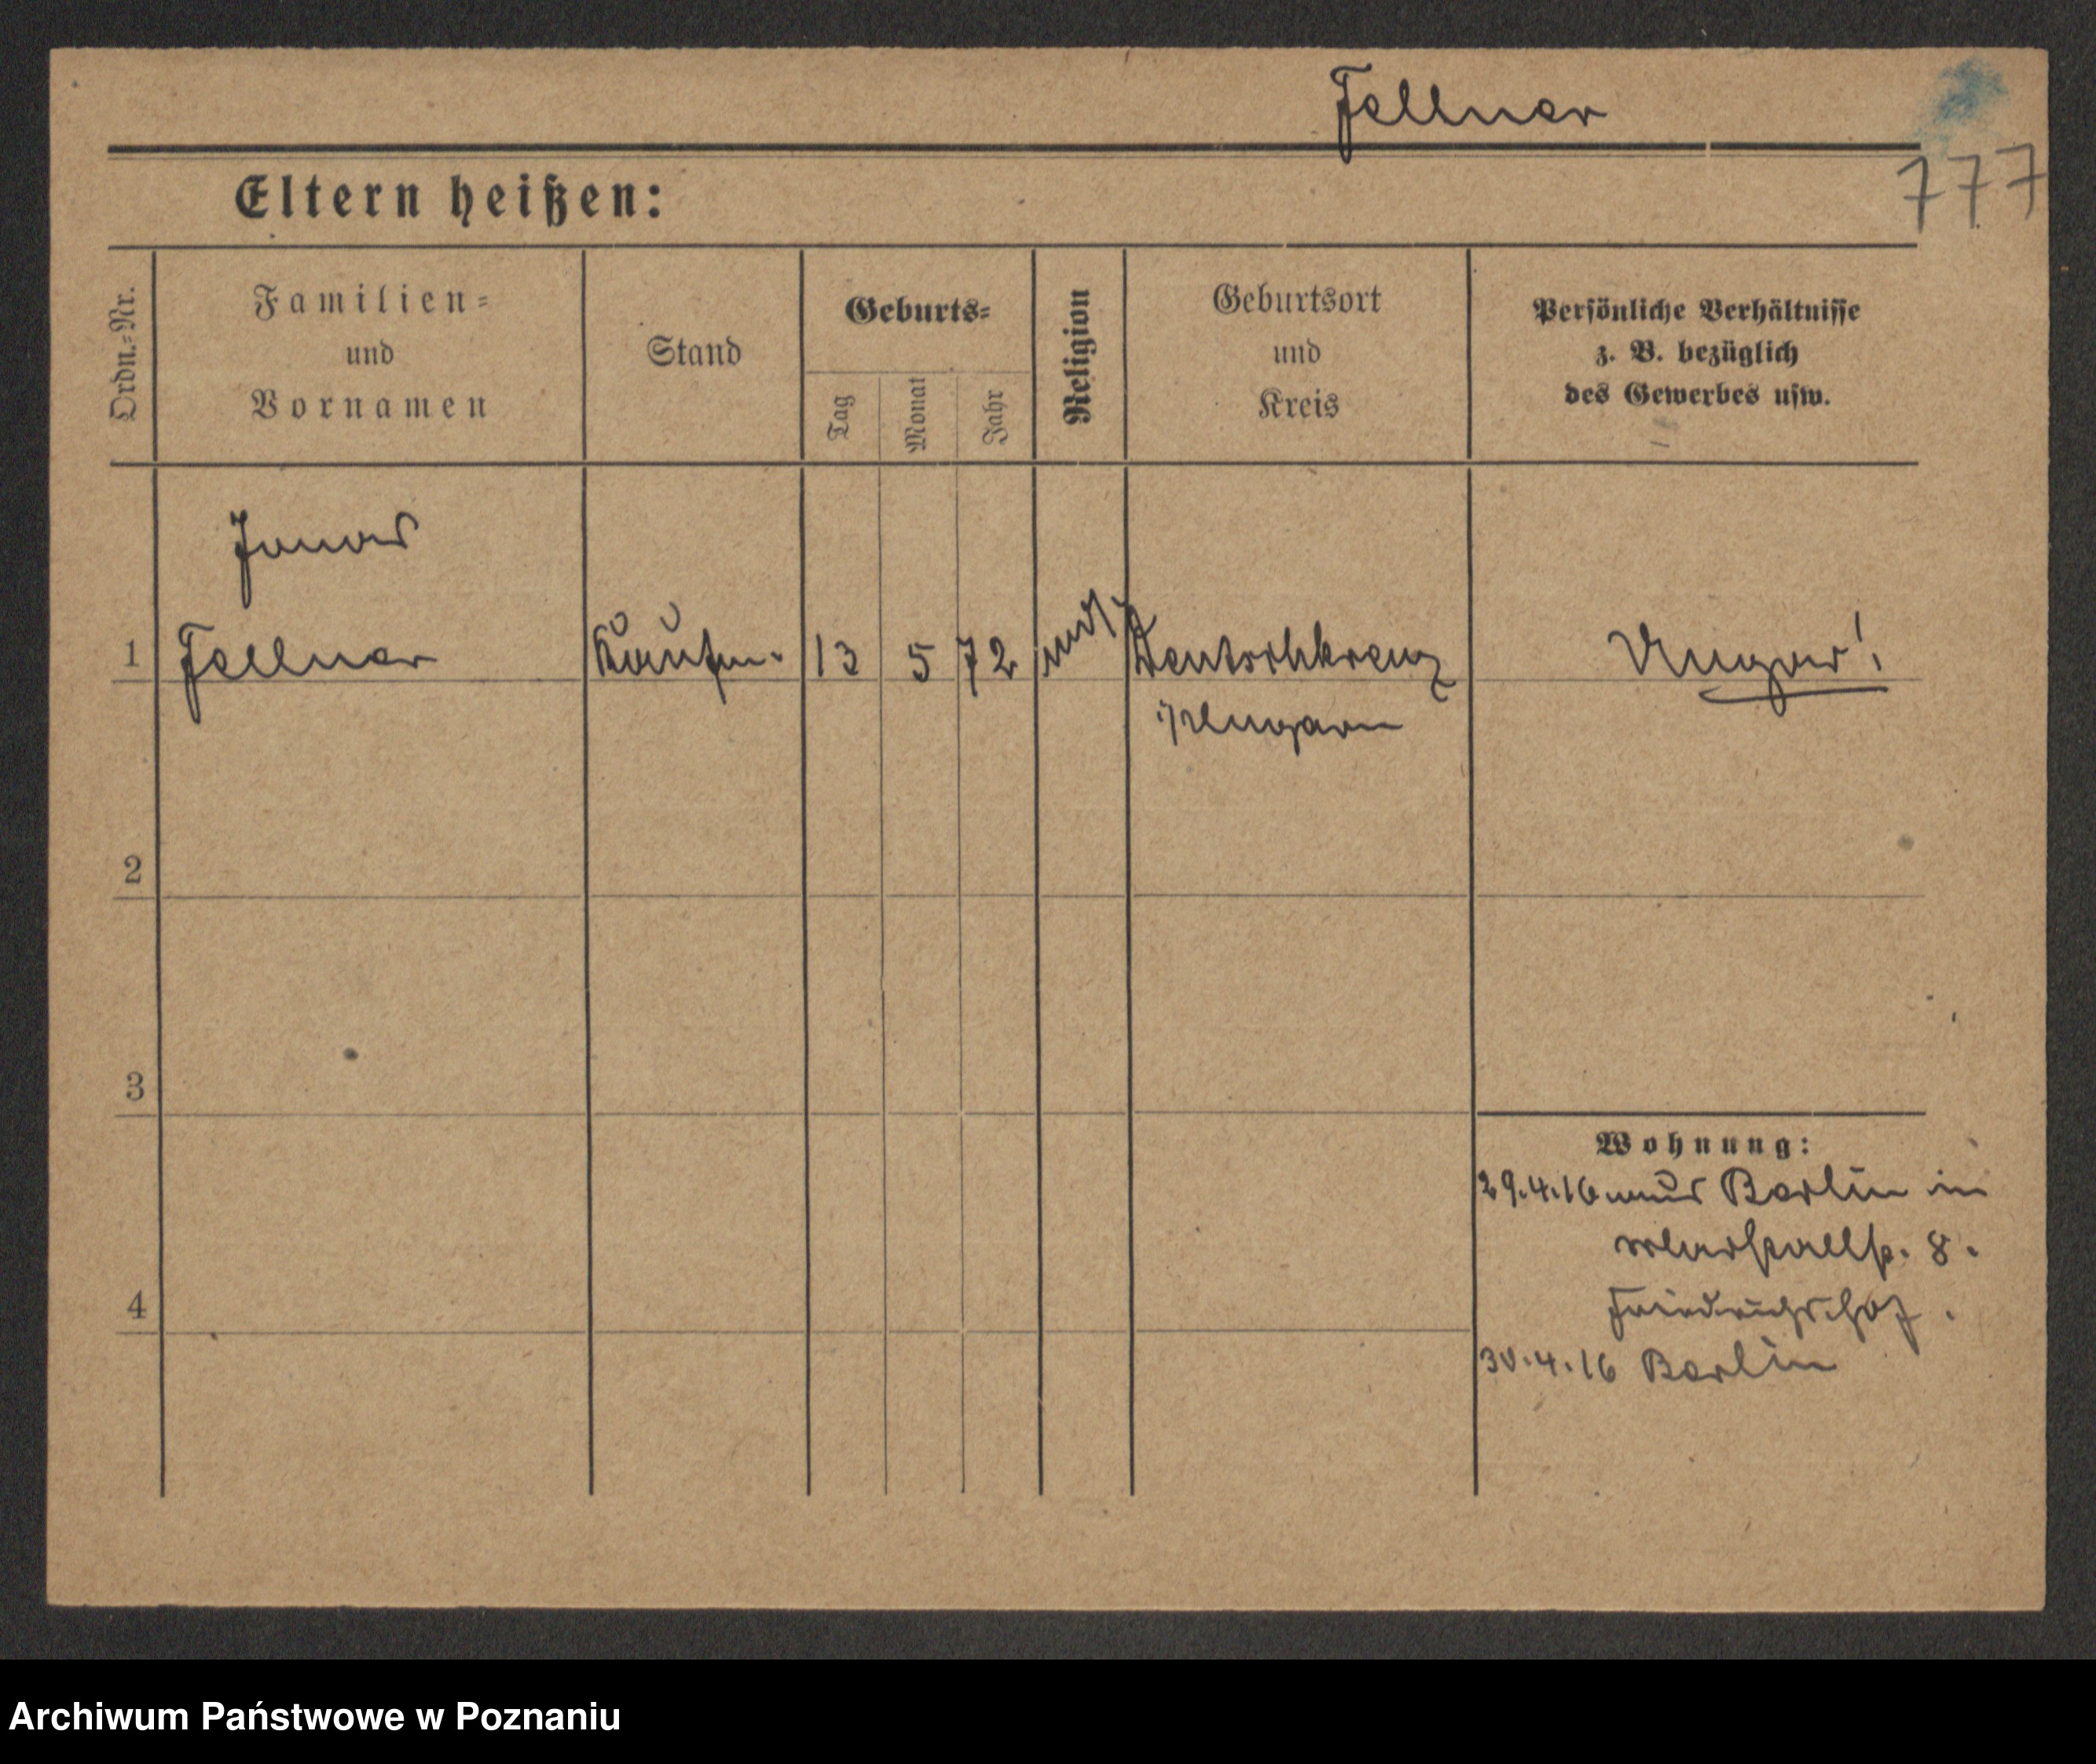 Fellner
777
Eltern heißen:
Ordn.=Nr.
Familien=
und
Vornamen
Stand
Geburts=
Tag
Monat
Jahr
Religion
Geburtsort
und
Kreis
Persönliche Verhältnisse
z. B. bezüglich
des Gewerbes usw.
Jonas
1 Fellner Kaufm. 13 5 72 Deutschkreuz Ungar!
i/Ungarn
2
3
Wohnung:
29.4.16 aus Berlin in
8.
4
Friedrichshof.
30.4.16 Berlin
Archiwum Państwowe w Poznaniu